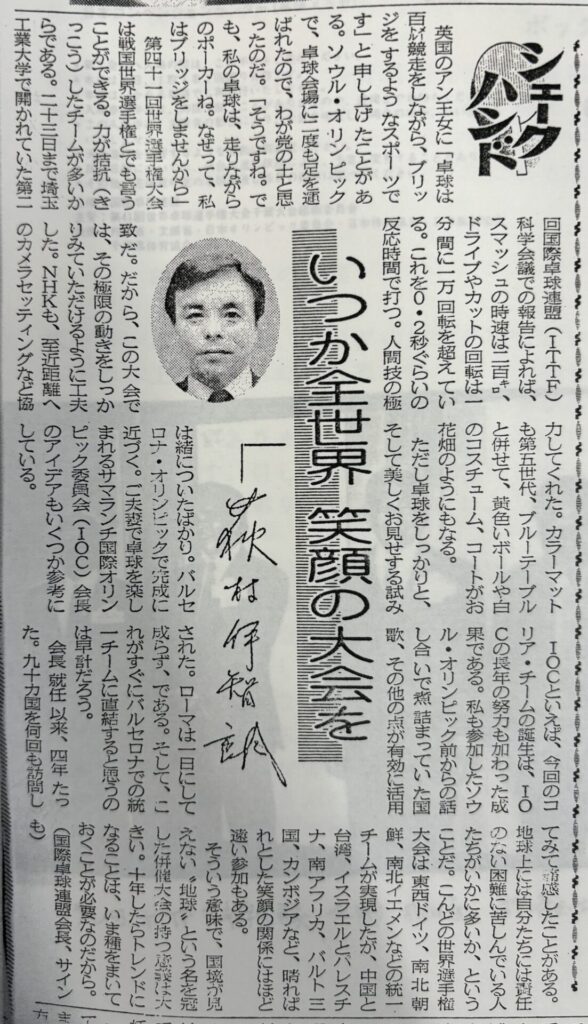 シェークハンド
英国のアン王女に「卓球は
百㍍競走をしながら、ブリッ
ジをするようなスポーツで
す」と申し上げたことがあ
る。ソウル・オリンピック
で、卓球会場に二度も足を運
ばれたので、わが党の士と思
ったのだ。「そうですね。で
も、私の卓球は、走りながら
のポーカーね。なぜって、私
はブリッジをしませんから」
第四十一回世界選手権大会
は戦国世界選手権とでも言う
ことができる。力が拮抗（き
っこう）したチームが多いか
らである。二十三日まで埼玉
工業大学で開かれていた第二
回国際卓球連盟（ＩＴＴＦ）
科学会議での報告によれば、
スマッシュの時速は二百㌔、
ドライブやカットの回転は一
分間に一万回転を超えてい
る。これを０・２秒ぐらいの
反応時間で打つ。人間技の極
致だ。だから、この大会で
は、その極限の動きをしっか
りみていただけるように工夫
した。ＮＨＫも、至近距離へ
のカメラセッティングなど協
いつか全世界 笑顔の大会を
荻村伊智朗
力してくれた。カラーマット
も第五世代、ブルーテーブル
と併せて、黄色いボールや白
のコスチューム、コートがお
花畑のようにもなる。
ただし卓球をしっかりと、
そして美しくお見せする試み
は緒についたばかり。バルセ
ロナ・オリンピックで完成に
近づく。ご夫妻で卓球を楽し
まれるサマランチ国際オリン
ピック委員会（ＩＯＣ）会長
のアイデアもいくつか参考に
している。
ＩＯＣといえば、今回のコ
リア・チームの誕生は、ＩＯ
Ｃの長年の努力も加わった成
果である。私も参加したソウ
ル・オリンピック前からの話
し合いで煮詰まっていた国
歌、その他の点が有効に活用
された。ローマは一日にして
成らず、である。そして、こ
れがすぐにバルセロナでの統
一チームに直結すると思うの
は早計だろう。
会長就任以来、四年たっ
た。九十カ国を何回も訪問し
てみて痛感したことがある。
地球上には自分たちには責任
のない困難に苦しんでいる人
たちがいかに多いか、という
ことだ。こんどの世界選手権
大会は、東西ドイツ、南北朝
鮮、南北イエメンなどの統一
チームが実現したが、中国と
台湾、イスラエルとパレスチ
ナ、南アフリカ、バルト三
国、カンボジアなど、晴れば
れとした笑顔の関係にはほど
遠い参加もある。
そういう意味で、国境が見
えない〝地球〟という名を冠
した併催大会の持つ意義は大
きい。十年したらトレンドに
なることは、いま種をまいて
おくことが必要なのだから。
（国際卓球連盟会長、サイン
も）